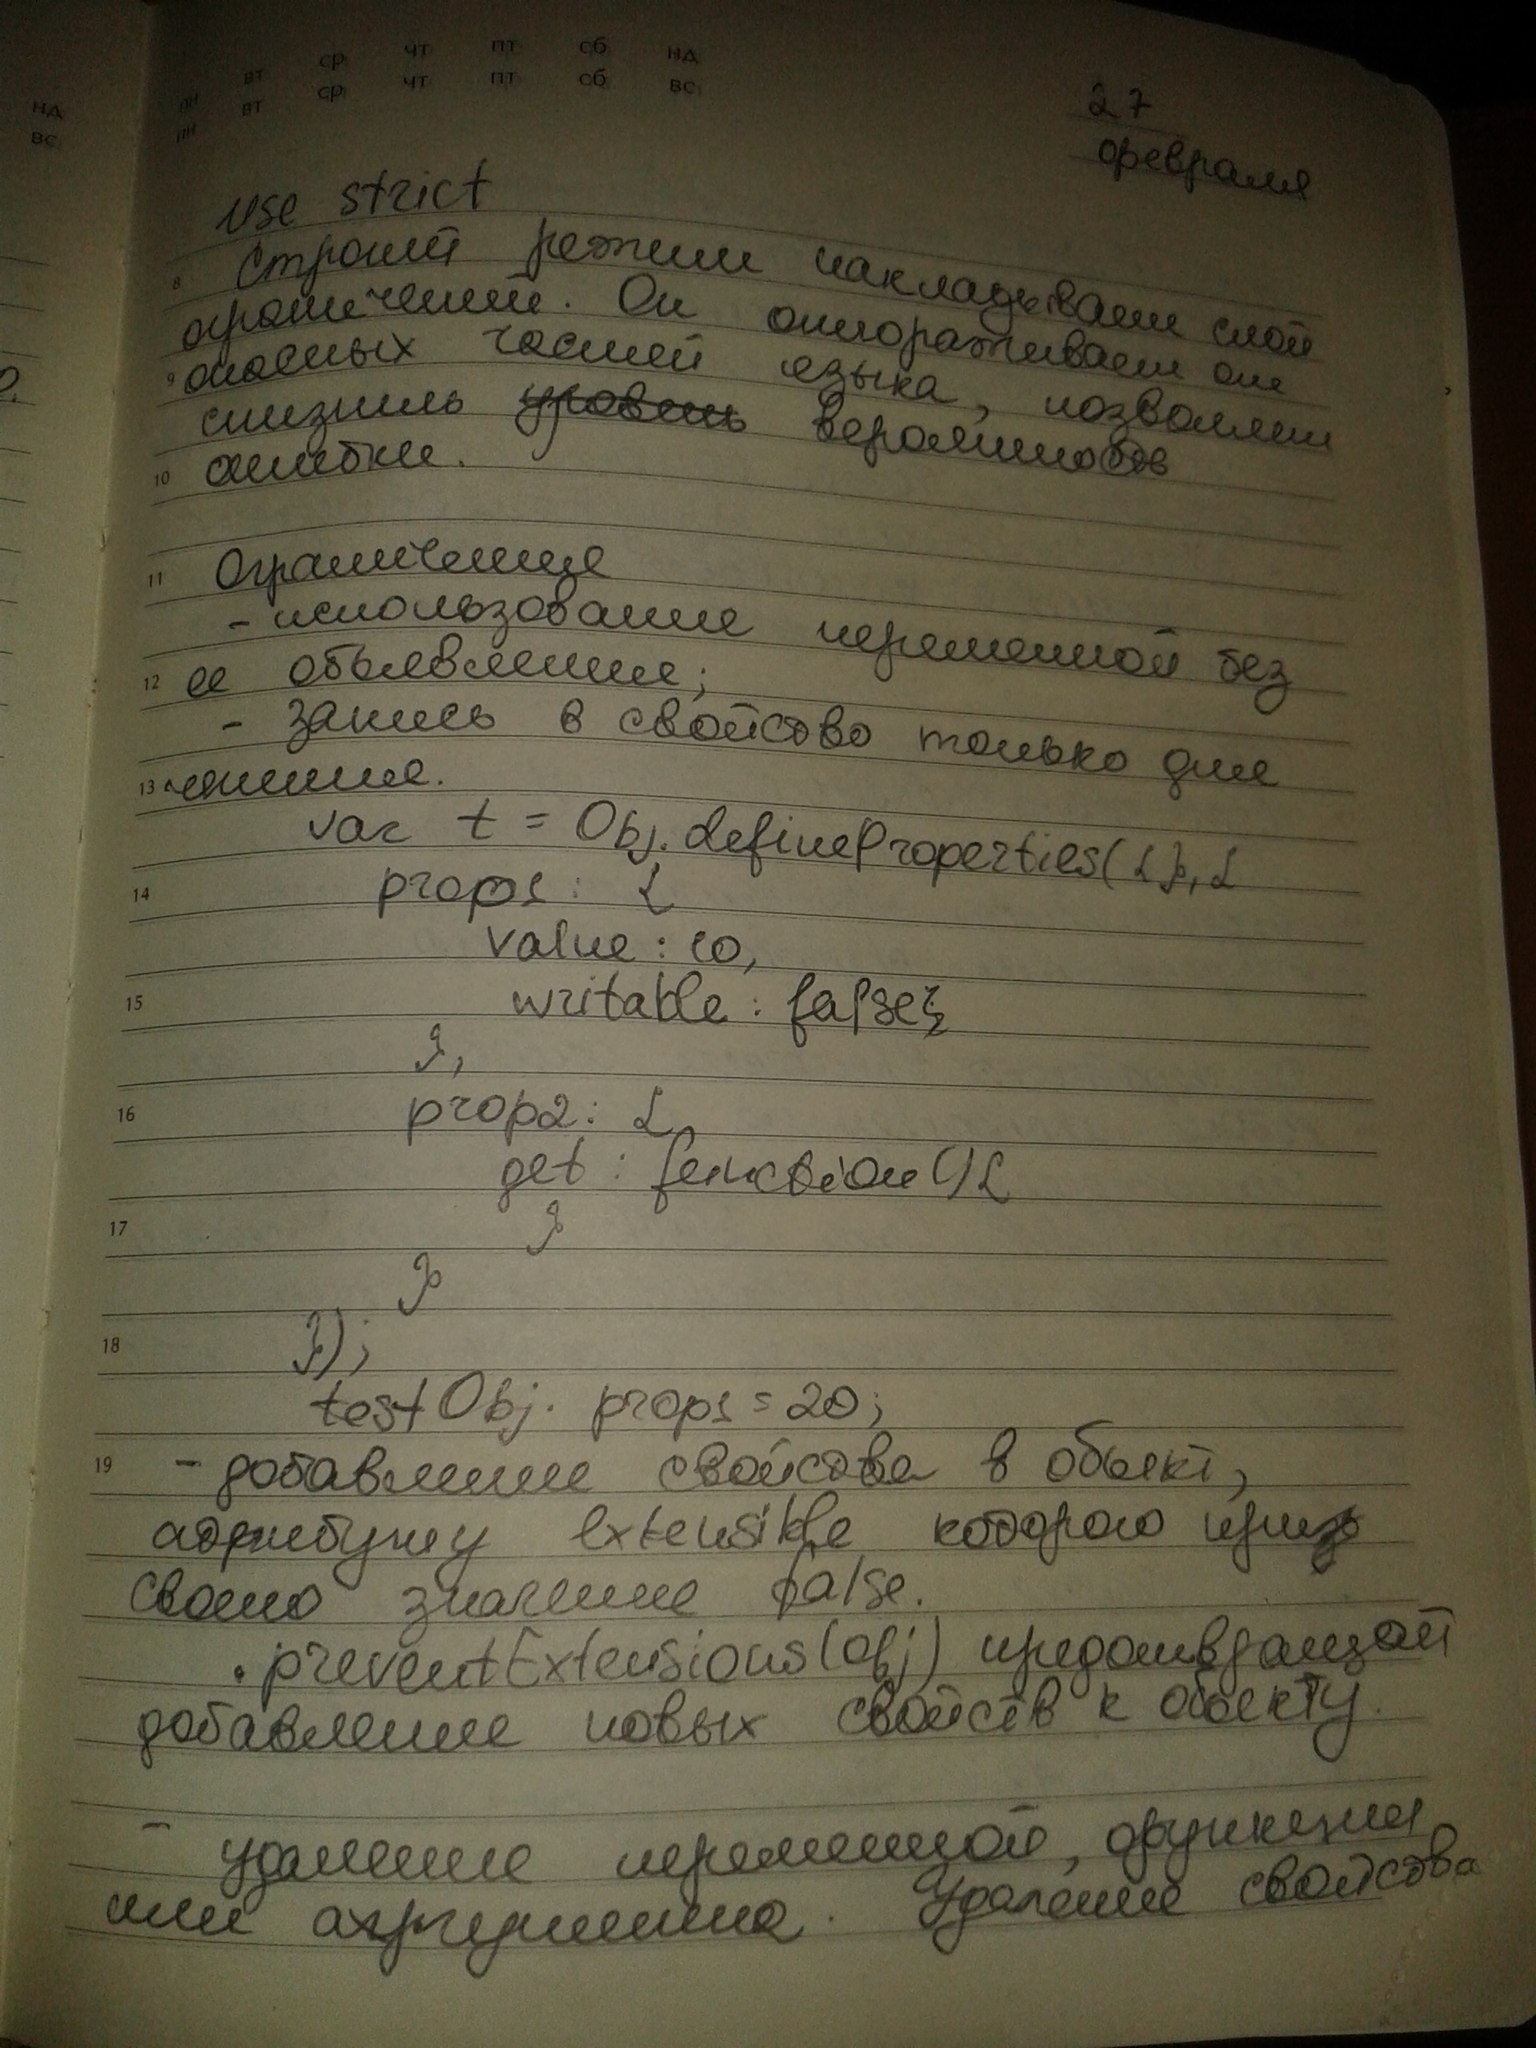 ср чт пт сб нд
пн вт ср чт пт сб вс
пн вт
нд
вс
27
февраля
use strict
8 Строгий режим накладывает слой
ограничений. Он отгораживает от
9 опасных частей языка, позволяет
снизить уровень вероятность
10 ошибки.
11 Ограничение
- использование переменной без
12 ее объявления;
- запись в свойство только для
13 чтения.
var t = Obj.defineProperties({}, {
14 prop1: {
value: 10,
15 writable: false
},
16 prop2: {
get: function() {
17 }
}
18 });
testObj. prop1 = 20;
19 - добавление свойства в объект,
атрибуту extensible которого присвоено
своено значение false.
. preventExtensions(obj) предотвращает
добавление новых свойств к объекту.
- удаление переменной, функции
или аргумента. Удаление свойства